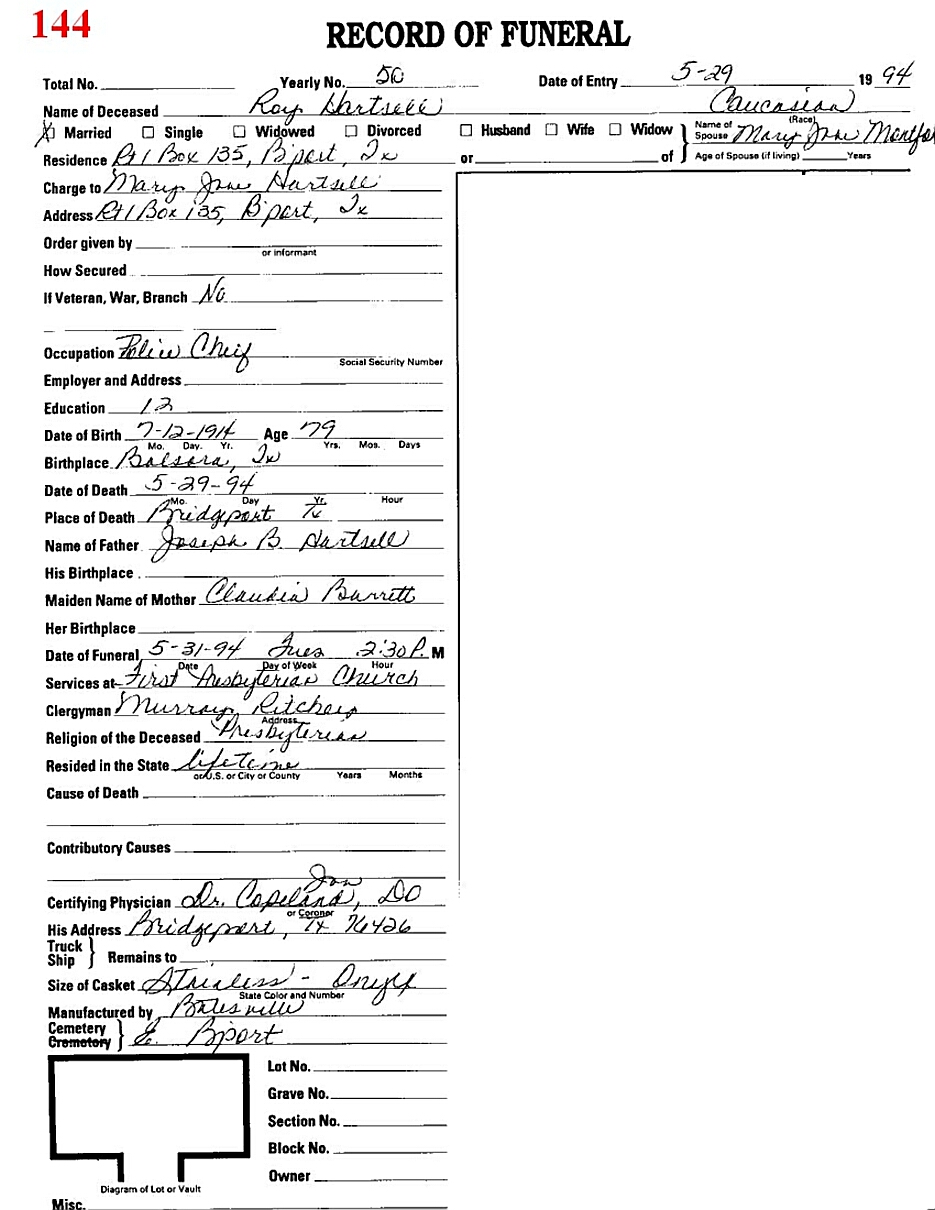 144
RECORD OF FUNERAL
Total No. Yearly No. 50 Date of Entry 5-29 19 94
Name of Deceased Roy Hartsell Caucasian
(Race)
X Married Single Widowed Divorced Husband Wife Widow Name of Spouse Mary Jane
Residence Rt 1 Box 135, B'port, Tx or of Age of Spouse (if living) Years
Charge to Mary Jane Hartsell
Address Rt 1 Box 135, B'port, Tx
Order given by
or informant
How Secured
If Veteran, War, Branch No
Occupation Police Cheif
Social Security Number
Employer and Address
Education 12
Date of Birth 7-12-1914 Age 79
Mo. Day. Yr. Yrs. Mos. Days
Birthplace Balsora, Tx
Date of Death 5-29-94
Mo. Day Yr. Hour
Place of Death Bridgeport Tx
Name of Father Joseph B. Hartsell
His Birthplace
Maiden Name of Mother Claudia Barrett
Her Birthplace
Date of Funeral 5-31-94 Tues 2:30 P. M
Date Day of Week Hour
Services at First Presbyterian Church
Clergyman Murray Ritchey
Address
Religion of the Deceased Presbyterian
Resided in the State lifetime
or U.S. or City or County Years Months
Cause of Death
Contributory Causes
Jon
Certifying Physician Dr. Copeland, DO
or Coroner
His Address Bridgeport, Tx 76426
Truck
Ship Remains to
Size of Casket Stainless - Onyx
State Color and Number
Manufactured by Batesville
Cemetery
Crematory E. B'port
Lot No.
Grave No.
Section No.
Block No.
Owner
Diagram of Lot or Vault
Misc.